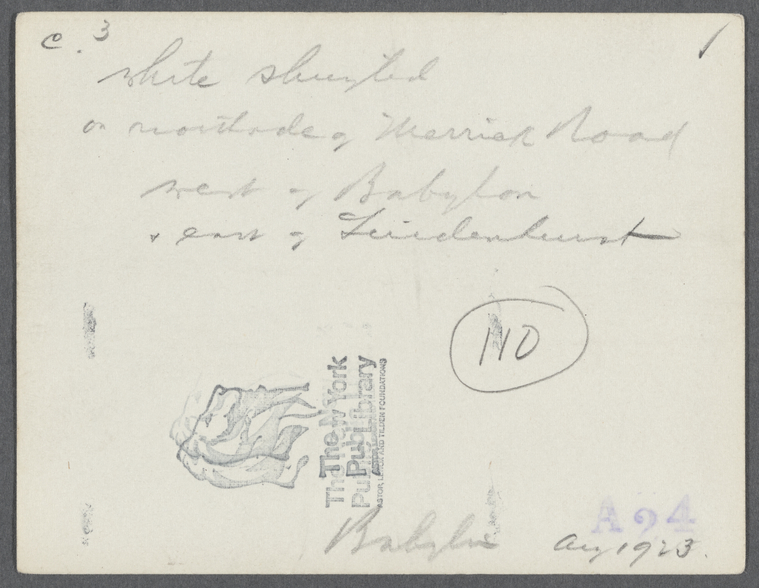 c. 3
/
white shingled
on northside of Merrick Road
west of Babylon
& east of Lindenhurst
110
The New York
Public Library
ASTOR, LENOX AND TILDEN FOUNDATIONS
A94
Babylon
Aug 1923.